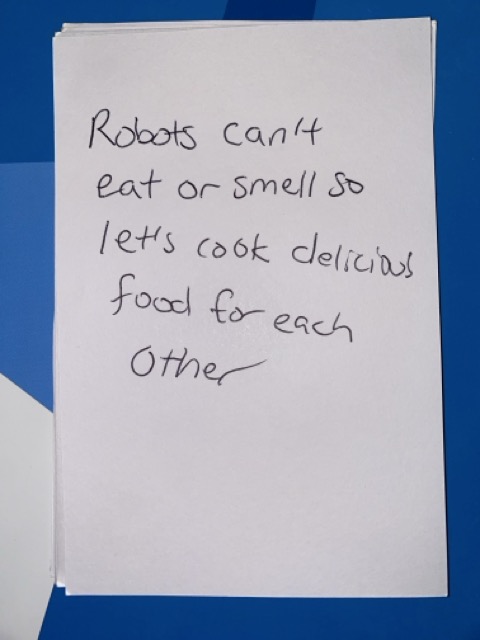 Robots can't
eat or smell so
let's cook delicious
food for each
Other